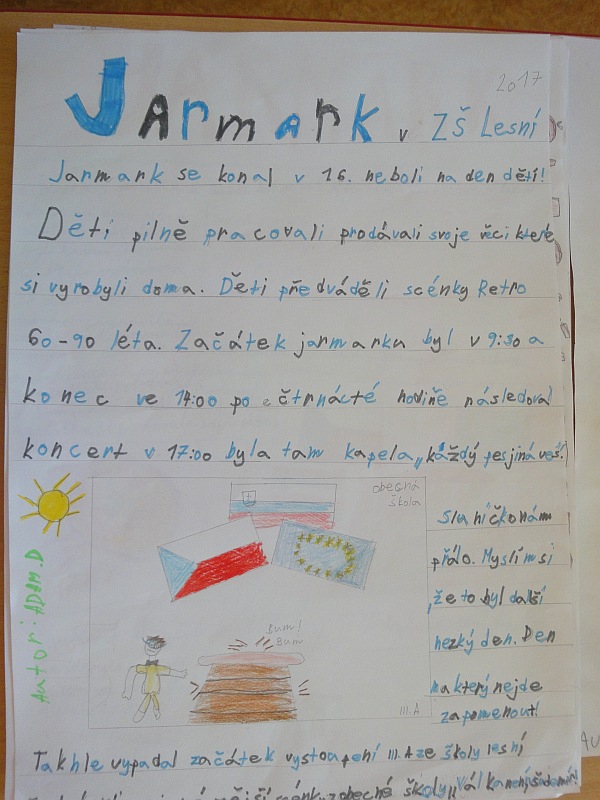 2017
Jarmark v ZŠ Lesní
Jarmark se konal v 16. neboli na den dětí!
Děti pilně pracovali prodávali svoje věci které
si vyrobyli doma. Děti předváděli scénky Retro
60-90 léta. Začátek jarmarku byl v 9:30 a
konec ve 14:00 po čtrnácté hodině následoval
koncert v 17:00 byla tam kapela „každý pes jiná ves."
obecná
škola
Sluníčko nám
přálo. Myslím si
,že to byl další
hezký den. Den
na který nejde
zapomenout!
Bum!
Bum
III.A
Autor: ADAM.D
Takhle vypadal začátek vystoupení III.A ze školy lesní
obecné školy